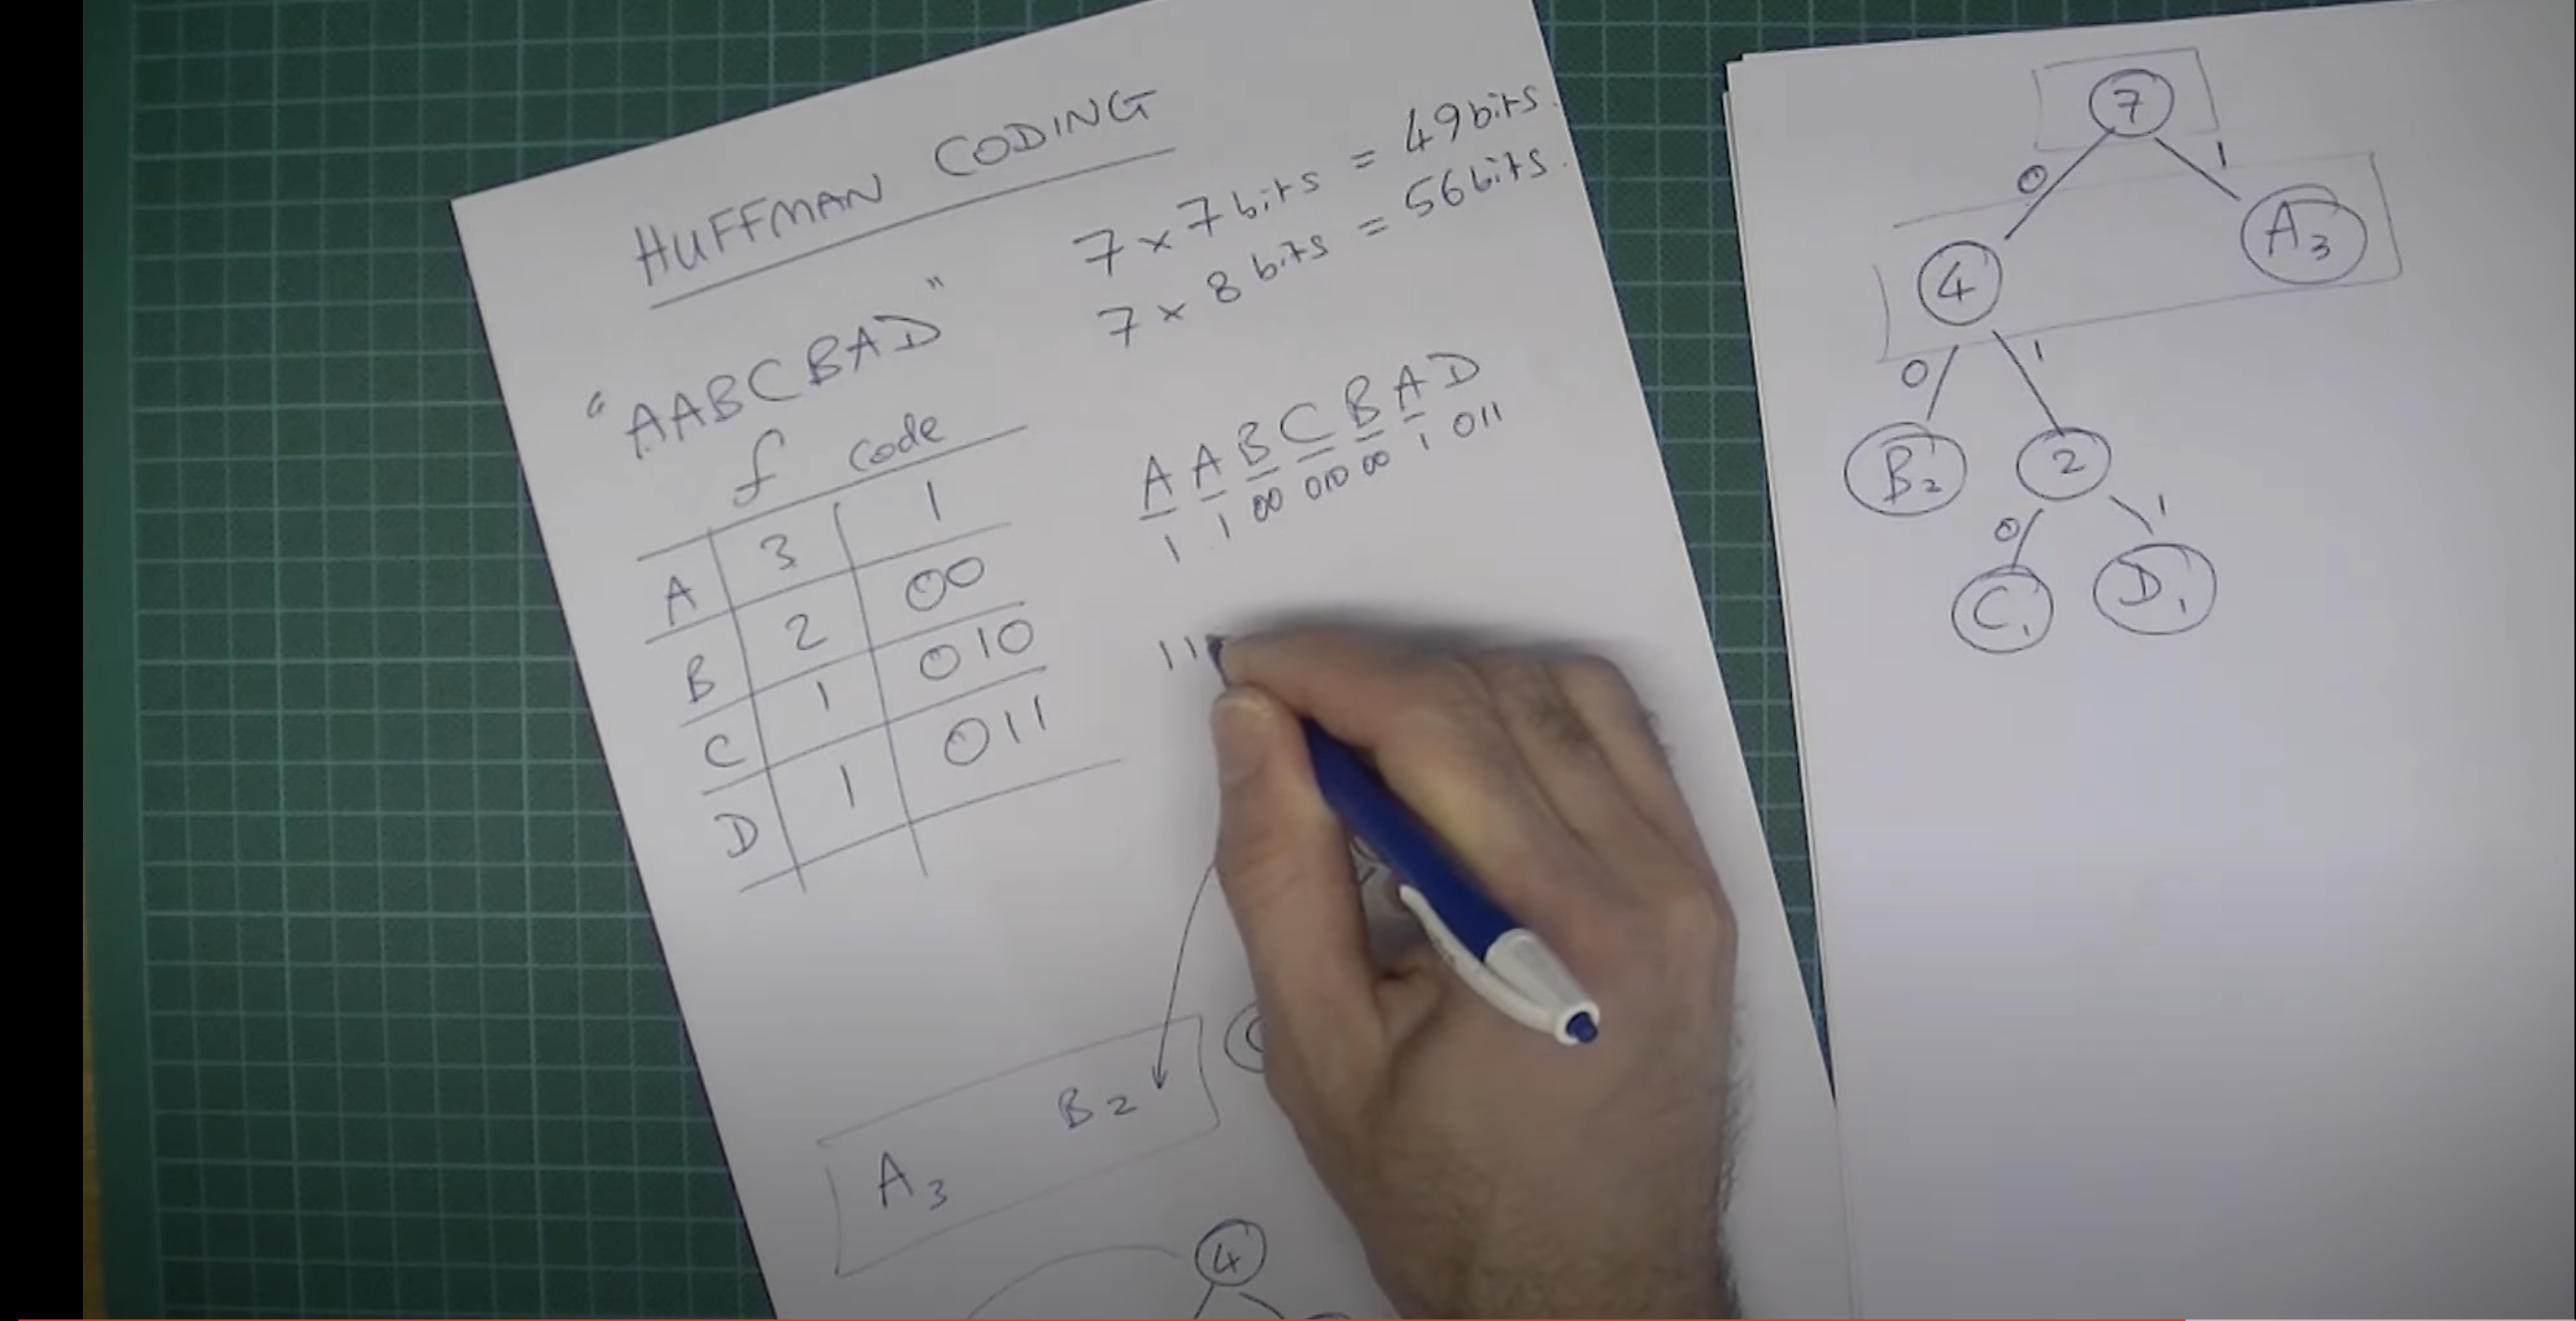 HUFFMAN CODING
7 x 7 bits = 49 bits.
7 x 8 bits = 56 bits.
"AABCBAD"
f code
A 3 1
B 2 00
C 1 010
D 1 011
A A B C B A D
1 1 00 010 00 1 011
11
A3 B2
4
7
0 1
4 A3
0 1
B2 2
0 1
C1 D1